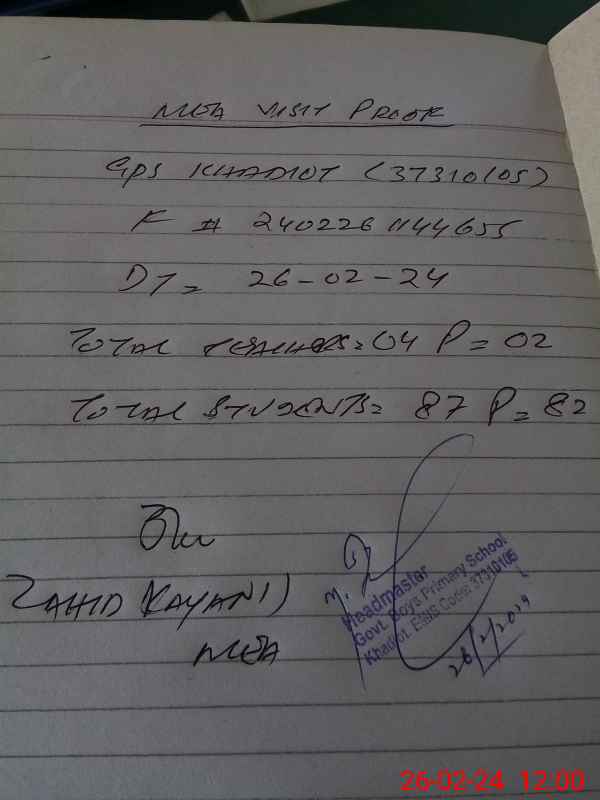 MEA VISIT PROOF
GPS KHADIOT (37310105)
F # 2402261144655
DT= 26-02-24
TOTAL TEACHERS=04 P=02
TOTAL STUDENTS= 87 P=82
ZAHID KAYANI
MEA
Headmaster
Govt. Boys Primary School
Khadiot. EMIS Code: 37310105
26/2/2024
26-02-24 12:00